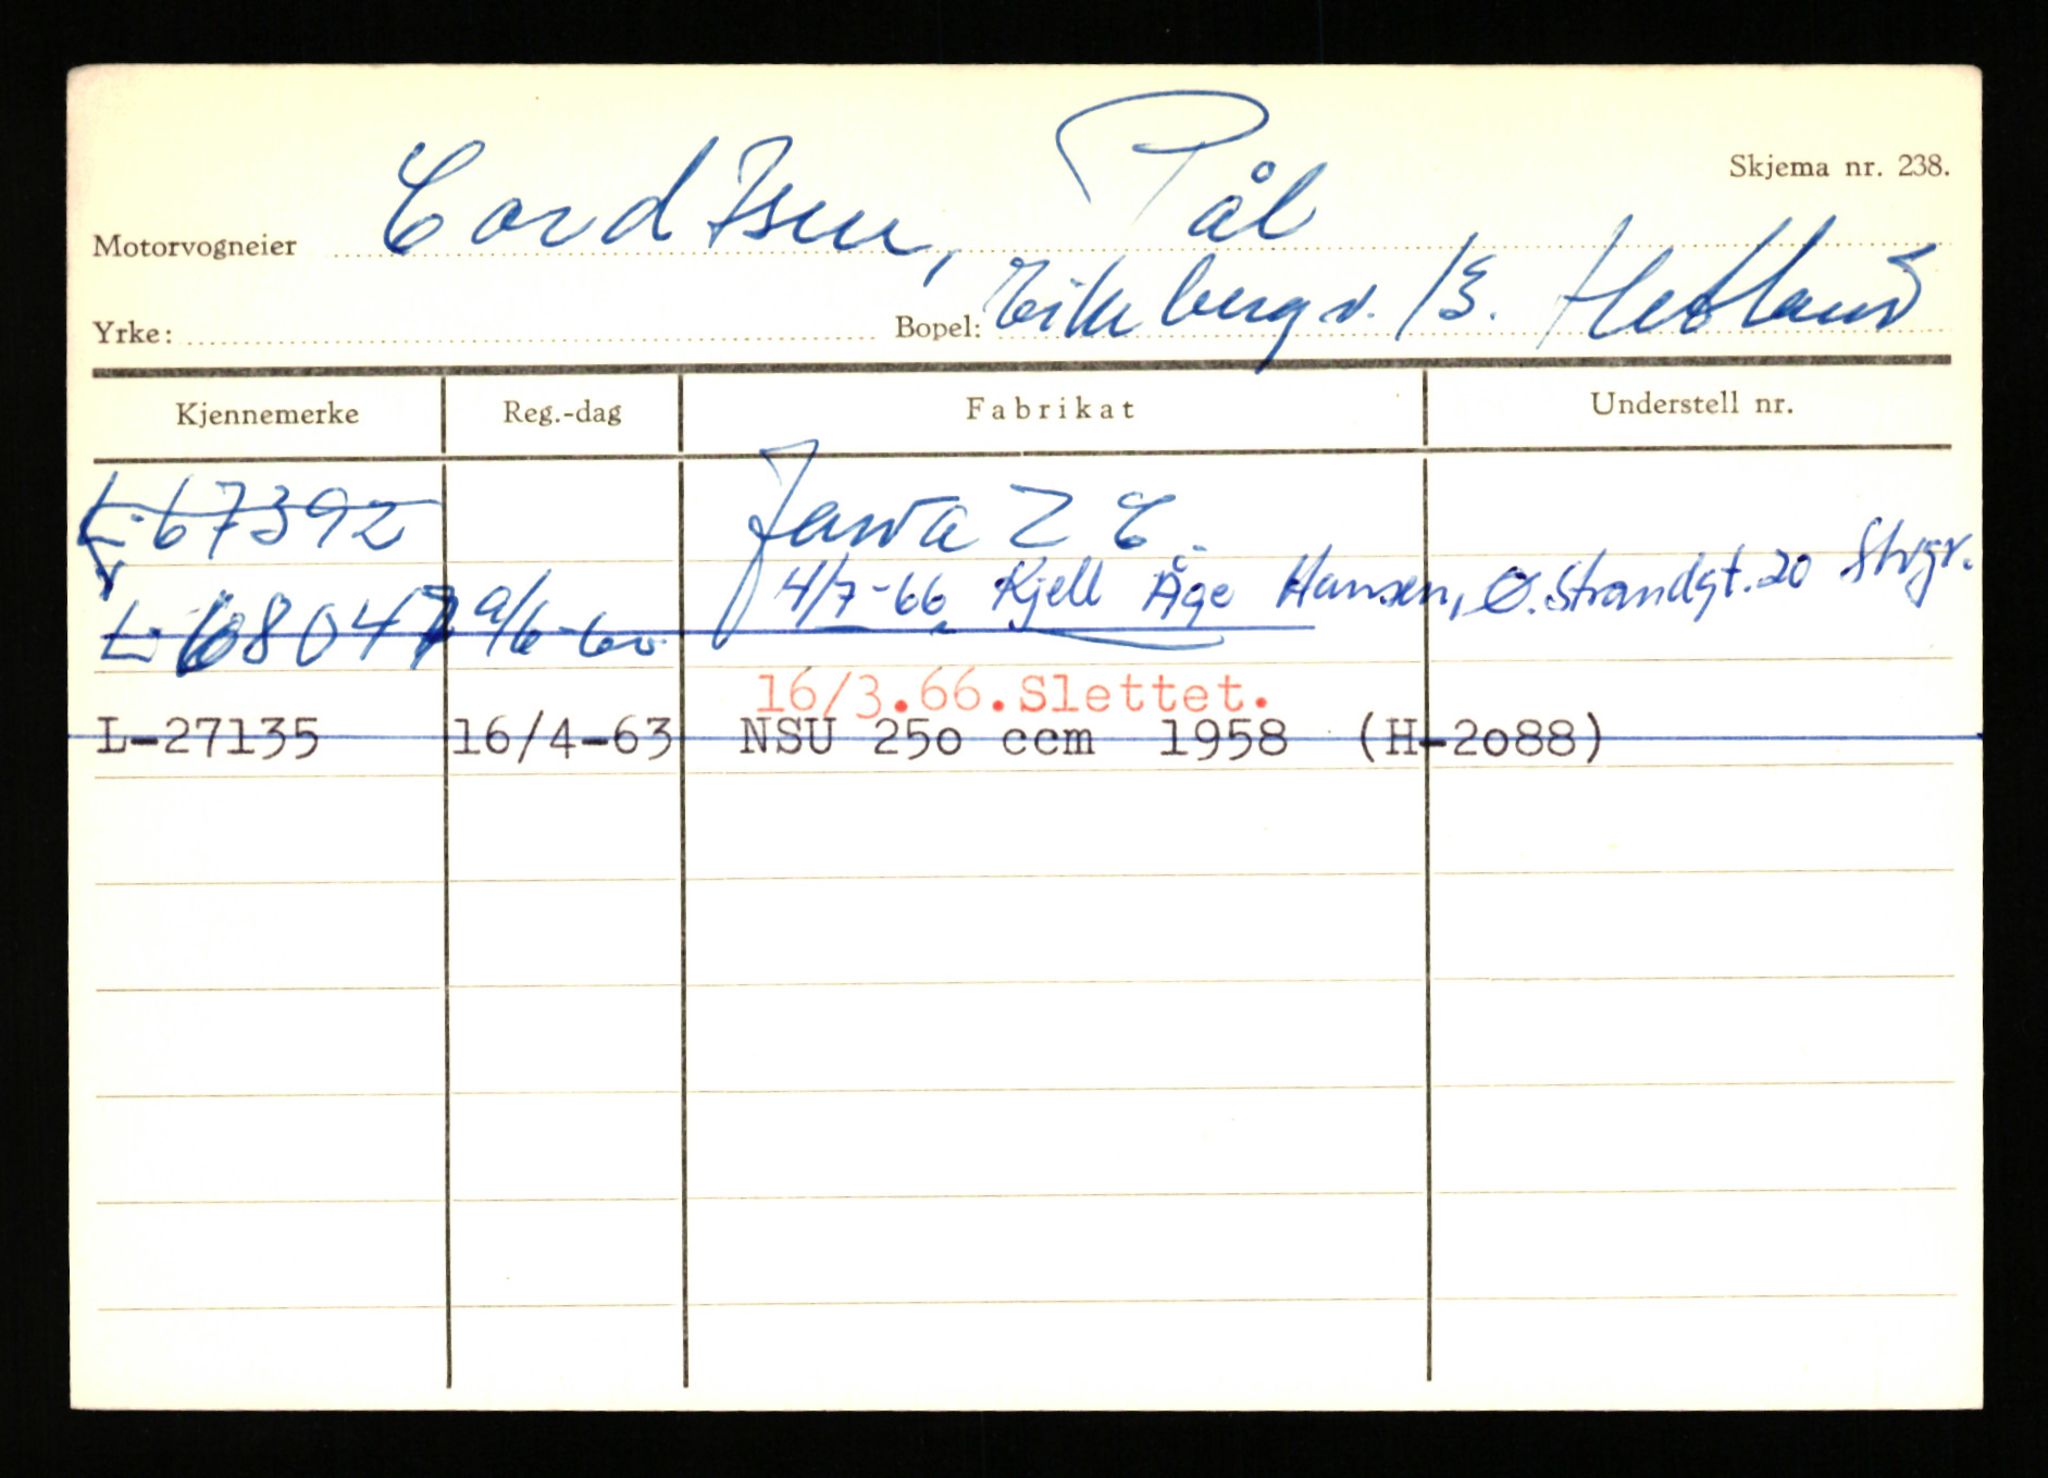 Skjema nr. 238.
Motorvogneier Cordtsen, Pål
Yrke: Bopel: Eikebergv. 13. Hetland
Kjennemerke Reg.-dag Fabrikat Understell nr.
L-67392 Jawa 2 C.
4/7-66 Kjell Åge Hansen, Ø. Strandgt. 20 Stvgr.
L-68047 9/6-60
16/3.66.Slettet.
L-27135 16/4-63 NSU 250 ccm 1958 (H-2088)